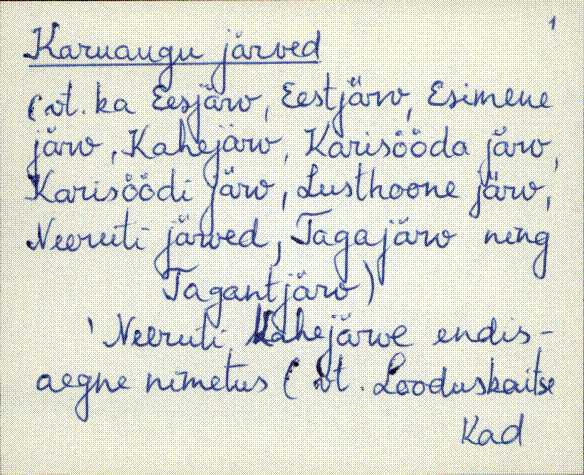 1
Karuaugu järved
(vt. ka Eesjärv, Eestjärv, Esimene
järv, Kahejärv, Karisööda järv,
Karisöödi järv, Lusthoone järv,
Neeruti järved, Tagajärv ning
Tagantjärv)
' Neeruti Kahejärve endis-
aegne nimetus (vt. Looduskaitse
Kad